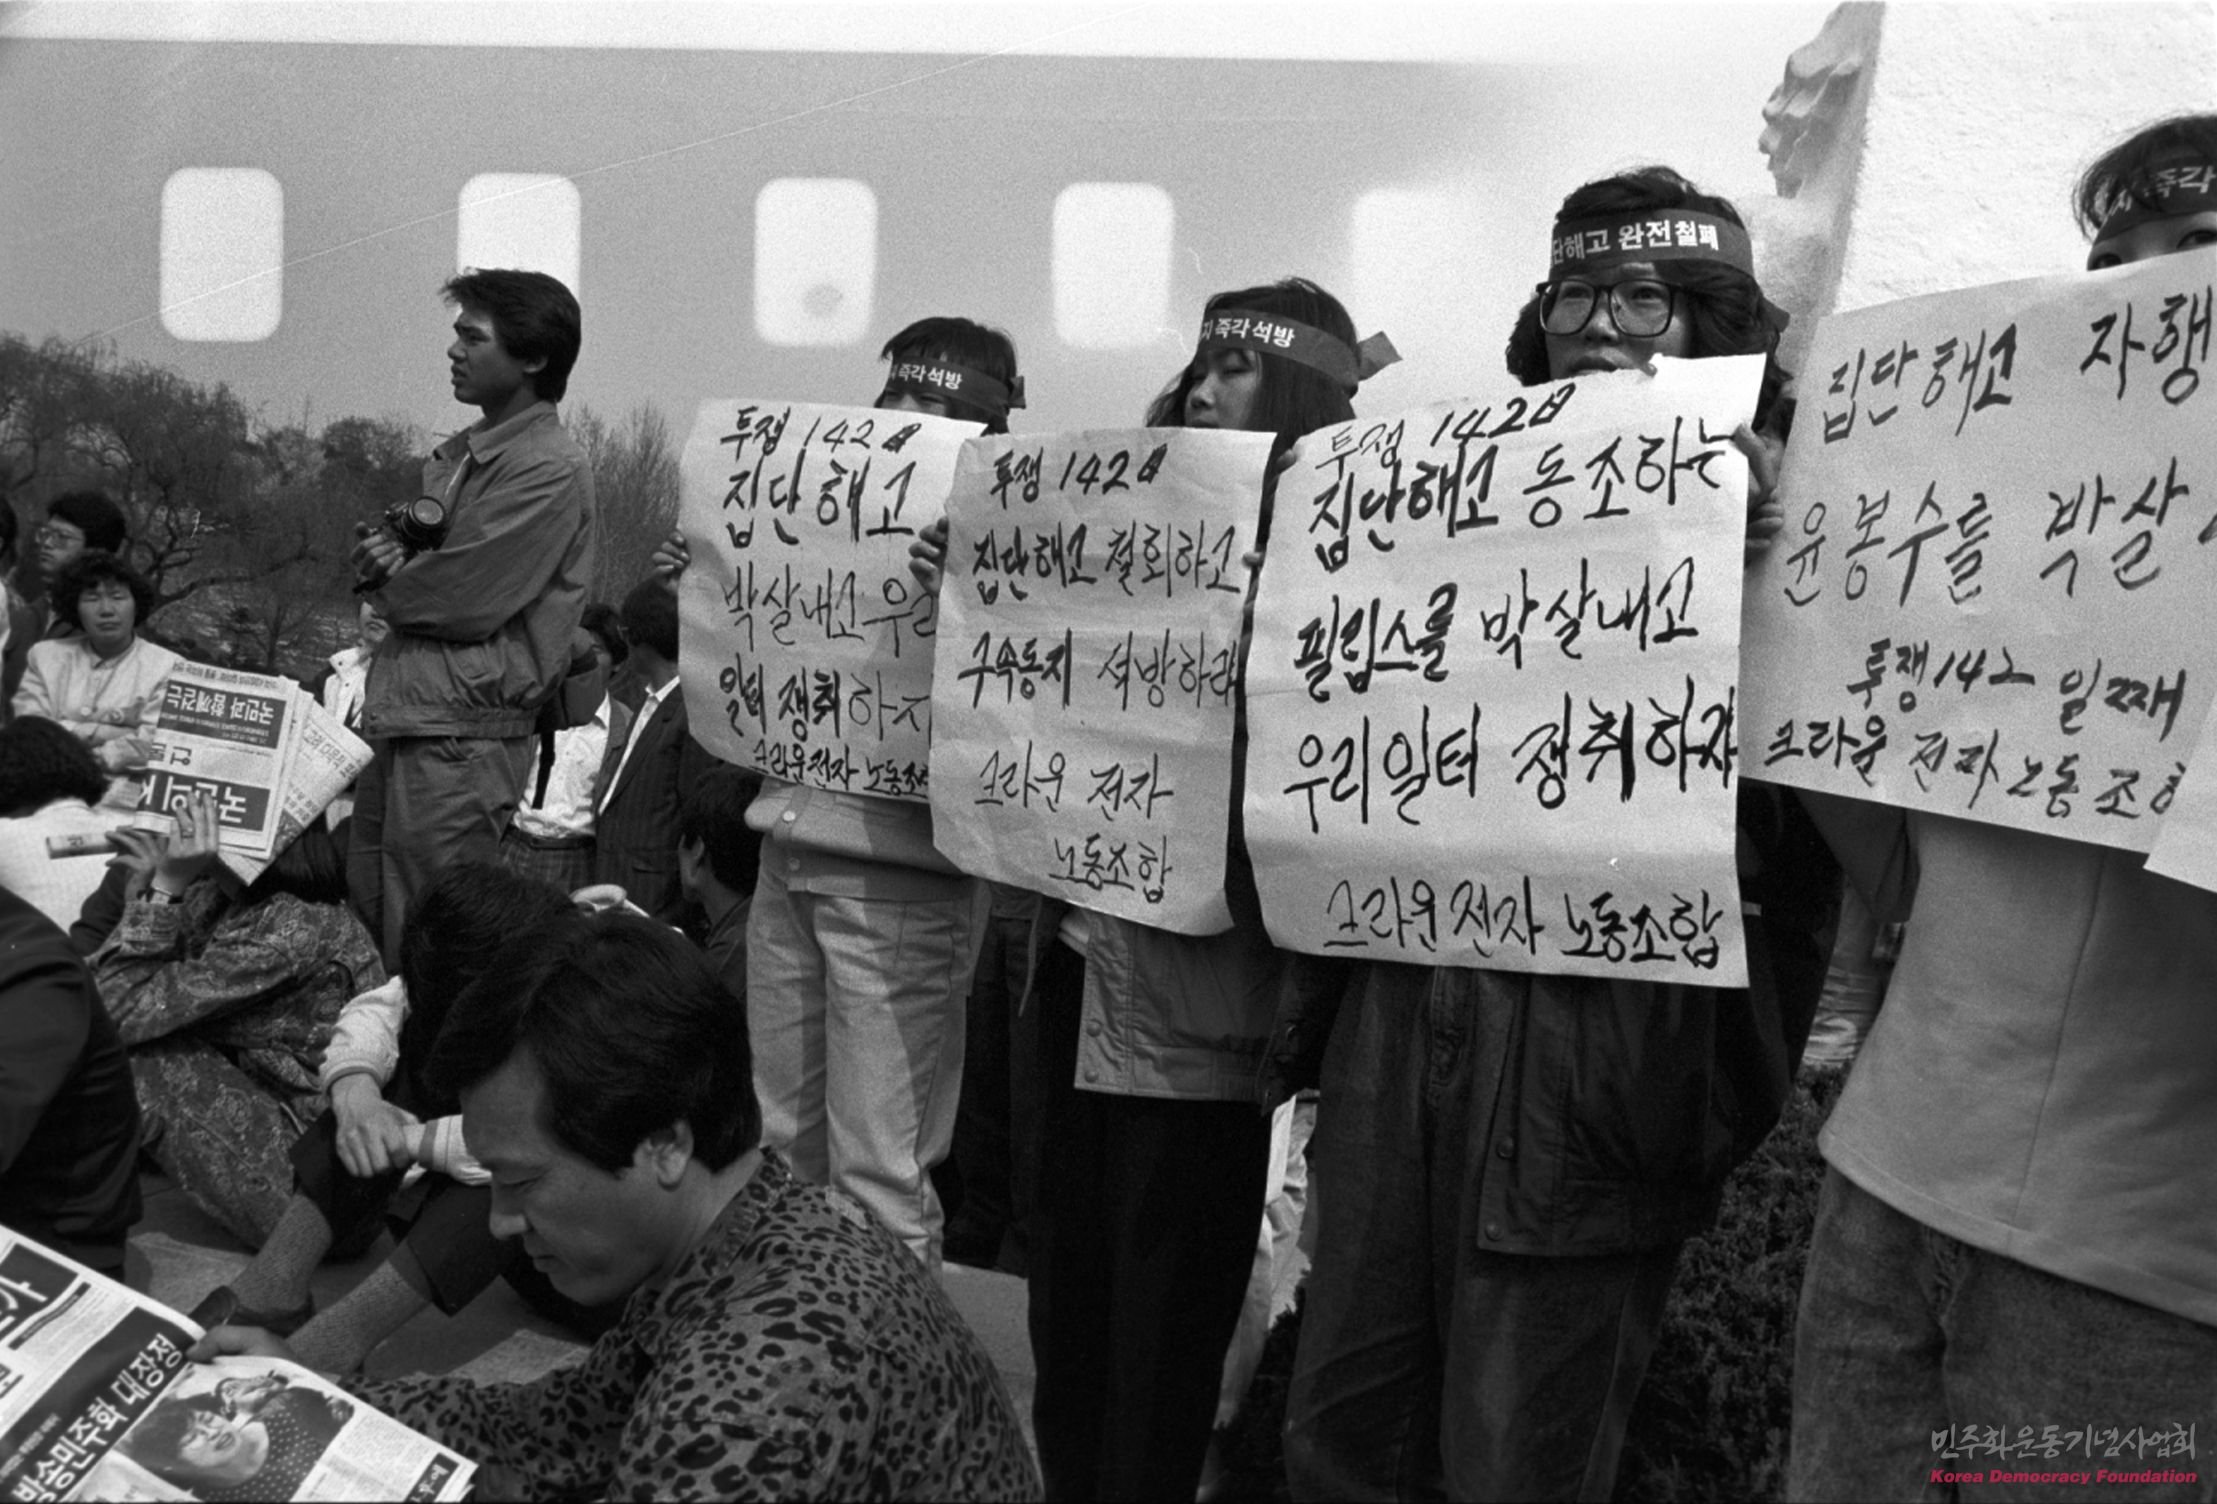 단해고 완전철폐
지 즉각석방
지 즉각석방
즉각
투쟁 142日
집단해고
박살내고 우리
일터 쟁취하자
크라운전자 노동조합
투쟁 142日
집단해고 철회하고
구속동지 석방하라
크라운 전자
노동조합
투쟁 142日
집단해고 동조하는
필립스를 박살내고
우리일터 쟁취하자
크라운전자 노동조합
집단해고 자행
윤봉수를 박살
투쟁 142 일째
크라운 전자 노동조합
국민과 함께걷는
국민의
방송민주화 대장정
민주화운동기념사업회
Korea Democracy Foundation